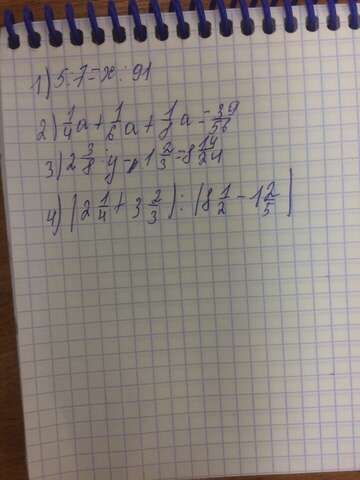 1) 5:7=x:91
2) 1/4a+1/6a+1/8a=39/56
3) 2 3/8:y-1 2/3=8 14/24
4) (2 1/4+3 2/3):(8 1/2-1 2/5)